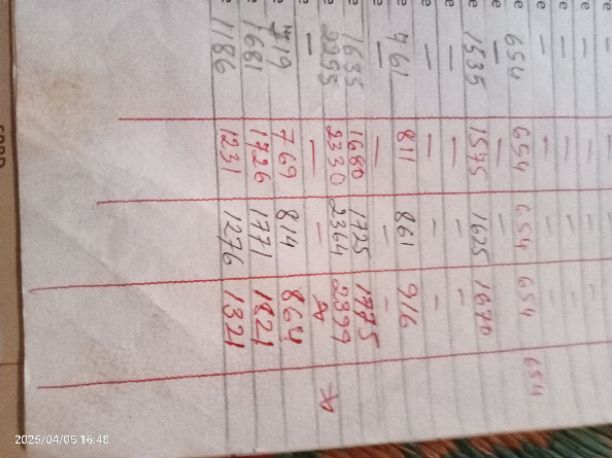 e — — — —
e — — — —
e — — — —
e 654 654 654 654 654
e — — — —
e 1535 1575 1625 1670
e — — — —
e — — — —
e 761 811 861 916
e — — — —
e 1635 1680 1725 1775
e 2295 2330 2364 2399
e — — —
e 719 769 814 864
e 1681 1726 1771 1821
e 1186 1231 1276 1321
2025/04/05 16:48